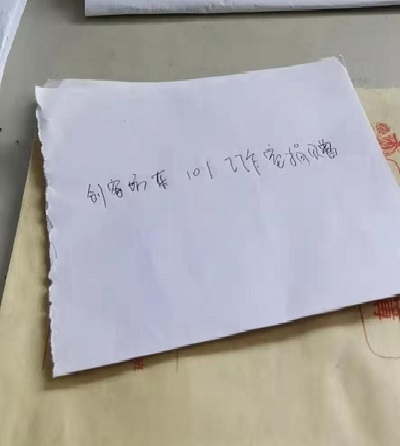 创客坊东101工作室捐赠